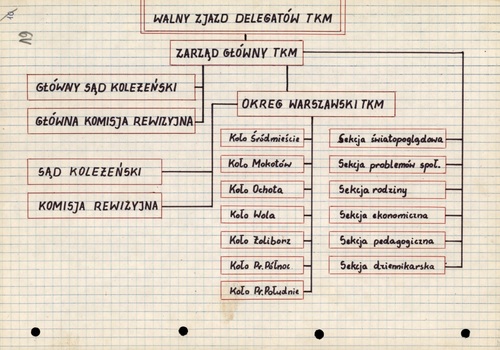 19
19
WALNY ZJAZD DELEGATÓW TKM
ZARZĄD GŁÓWNY TKM
GŁÓWNY SĄD KOLEŻEŃSKI
GŁÓWNA KOMISJA REWIZYJNA
OKRĘG WARSZAWSKI TKM
SĄD KOLEŻEŃSKI
KOMISJA REWIZYJNA
Koło Śródmieście
Koło Mokotów
Koło Ochota
Koło Wola
Koło Żoliborz
Koło Pr.Północ
Koło Pr.Południe
Sekcja światopoglądowa
Sekcja problemów społ.
Sekcja rodziny
Sekcja ekonomiczna
Sekcja pedagogiczna
Sekcja dziennikarska